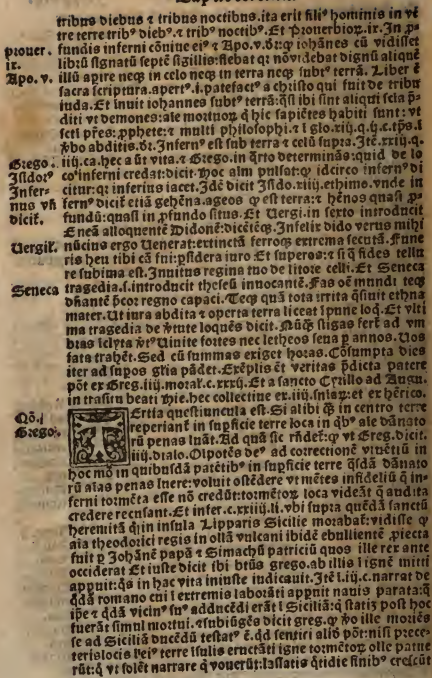 tribus diebus & tribus noctibus. ita erit filiꝰ hominis in vē
tre terre tribꝰ diebꝰ. & tribꝰ noctibꝰ. Et ꝓuerbioꝝ. ix. In ꝓ
prouer. fundis inferni cōuiue eiꝰ & Apo. v. dr̄. ꝙ iohānes cū vidisset
ix. librū signatū septē sigillis: flebat qr̄ nō videbat dignū aliquē
Apo. v. illū apire necꝫ in celo necꝫ in terra necꝫ subtꝰ terrā. Liber ē
sacra scriptura. apertꝰ. i. patefactꝰ a christo qui fuit de tribu
iuda. Et inuit iohannes subtꝰ terrā: qͣsi ibi sint aliqui scia p̄
diti vt demones: ale mortuoꝝ
scti pr̄es: ꝓphete: & multi philosophi. i glo. xiij. q. ij.
ꝟbo abditis. dr̄. Infernꝰ est sub terra & celū supra. Itē. xiij. q.
Grego. iiij. ca. hec a ūt vita. & Grego. in qͣrto determinās: quid de lo
Isidorꝰ co inferni credat: dicit. Hoc alm pulsat: ꝙ idcirco infernꝰ di
Infer- citur: qꝛ inferius iacet. Idē dicit Isido. xiiij. ethimo. vnde in
nus vñ fernꝰ dicit etiā gehēna. ageos ꝙ est terra: & hēnos quasi ꝓ-
dicit̉. fundū: quasi in ꝓfundo situs. Et Uergi. in sexto introducit
Eneā alloquentē Didonē: dicētēqꝫ. Infelix dido verus mihi
Uergil. nūcius ergo Uenerat: extinctā ferroqꝫ extrema secutā. Fune
ris heu tibi cā fui: ꝑsidera iuro Et superos: & si q̄ fides tellu
re subima est. Inuitus regina tuo de litore celli. Et Seneca
Seneca tragedia. i. introducit theseū innocantē. Fas oē mundi teqꝫ
dn̄antē p̄cor regno capaci. Teqꝫ quā tota irrita q̄siuit ethna
mater. Ut iura abdita & operta terra liceat ipune loq̄. Et vlti
ma tragedia de ꝟtute loquēs dicit. Nūqͣ̄ stigas fert̉ ad vm
bras iclyta ꝟtꝰ Uiuite fortes nec letheos seua p annos. Uos
fata trahēt. Sed cū summas exiget horas. Cōsumpta dies
iter ad supos gl̄ia pādet. Exēplis ēt veritas p̄dicta patere
pōt ex Greg. iiij. moral. c. xxxij. Et a sancto Cyrillo ad Augu.
in trāsitu beati Hie. hec collectiue ex. iiij. sniaꝝ: et ex hērico.
Qō. i Tertia questiuncula est. Si alibi qͣ in centro terre
Grego. reperiant̉ in supficie terre loca in qͥbꝰ ale dānato
rū penas luāt. Ad quā sic rn̄det̉: ꝙ vt Greg. dicit.
iiij. dialo. Oīpotēs deꝰ ad correctionē viuētiū in
hoc mō in quibusdā patētibꝰ in supficie terre qͣsdā dānato
rū aīas penas luere: voluit ostēdere vt mētes infideliū q̄ in-
ferni tormēta esse nō credūt: tormētoꝝ loca videāt q̄ audita
credere recusant. Et infer. c. xxiiij. li. vbi supra quēdā sanctū
heremitā q̄ in insula Lipparis Sicilie morabat̉: vidisse ꝙ
aīa theodorici regis in ollā vulcani ibidē ebullientē ꝓiecta
fuit p Johānē papā & Simachū patriciū quos ille rex ante
occiderat Et iuste dicit ibi btūs grego. ab illis i ignē mitti
appuit: qͦs in hac vita iniuste iudicauit. Itē l. iij. c. narrat de
qͦdā romano cui i extremis laborāti appuit nauis parata: ꝙ
ipe & qͦdā vicinꝰ suꝰ adducēdi erāt i Siciliā: q̄ statiꝫ post hoc
fuerāt simul mortui. & subiūgēs dicit greg. ꝙ ꝟo ille moriēs
se ad Siciliā ducēdū testatꝰ ē. qd̄ sentiri alid pōt: nisi p̄ ce ce-
teris locis i eiꝰ terre isulis eructāti igne tormētoꝝ olle patue
rūt: q̄ vt solēt narrare q̄ vouerūt: laxatis qͦtidie finibꝰ crescūt